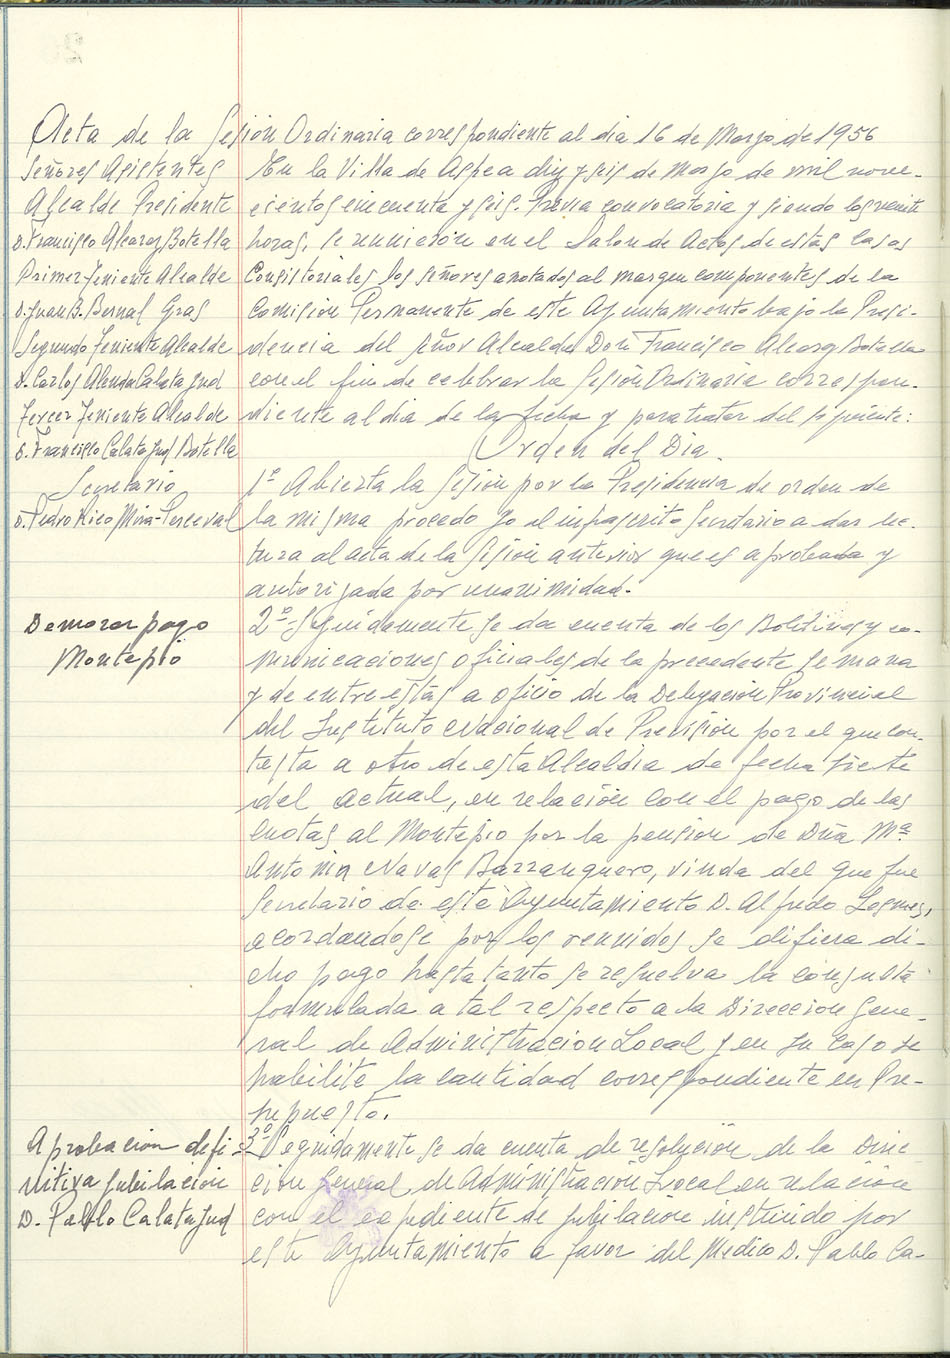 Acta de la Sesión Ordinaria correspondiente al dia 16 de Marzo de 1956
Señores Asistentes
Alcalde Presidente
D. Francisco Alcaraz Botella
Primer Teniente Alcalde
D. Juan B. Bernal Gras
Segundo Teniente Alcalde
D. Carlos Alenda Calatayud
Tercer Teniente Alcalde
D. Francisco Calatayud Botella
Secretario
D. Pedro Rico Mira-Perceval
En la Villa de Aspe a diez y seis de Marzo de mil nove-
cientos cincuenta y seis. Previa convocatoria y siendo las veinte
horas, se reunieron en el Salon de Actos de estas Casas
Consistoriales los señores anotados al margen componentes de la
Comision Permanente de este Ayuntamiento bajo la Presi-
dencia del Señor Alcalde Don Francisco Alcaraz Botella
con el fin de celebrar la Sesión Ordinaria correspon-
diente al dia de la fecha y para tratar del siguiente:
Orden del Dia.
1º Abierta la Sesión por la Presidencia de orden de
la misma procedo yo el infrascrito Secretario a dar lec-
tura al acta de la Sesión anterior que es aprobada y
autorizada por unanimidad.
Demorar pago
Montepio
2º- Seguidamente se da cuenta de los Boletines y co-
municaciones oficiales de la precedente semana
y de entre estas a oficio de la Delegacion Provincial
del Instituto Nacional de Previsión por el que con-
testa a otro de esta Alcaldia de fecha siete
del actual, en relación con el pago de las
cuotas al Montepio por la pensión de Dña Mª
Antonia Navas Barranquero, viuda del que fue
Secretario de este Ayuntamiento D. Alfredo
acordandose por los reunidos se difiera di-
cho pago hasta tanto se resuelva la consulta
formulada a tal respecto a la Direccion Gene-
ral de Administracion Local y en su caso se
habilite la cantidad correspondiente en Pre-
supuesto.
Aprobación defi-
nitiva jubilación
D. Pablo Calatayud
3º Seguidamente se da cuenta de resolución de la Direc
ción General de Administracion Local en relación
con el expediente de jubilación instruido por
este Ayuntamiento a favor del Medico D. Pablo Ca-